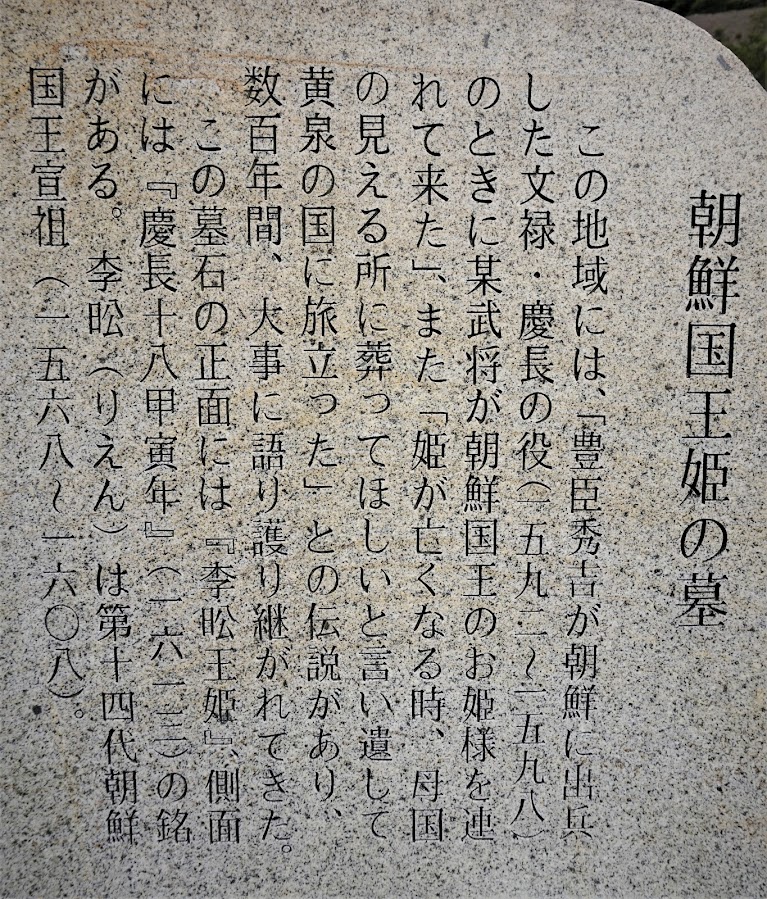 朝鮮国王姫の墓
この地域には、「豊臣秀吉が朝鮮に出兵
した文禄・慶長の役（一五九二～一五九八）
のときに某武将が朝鮮国王のお姫様を連
れて来た」、また「姫が亡くなる時、母国
の見える所に葬ってほしいと言い遺して
黄泉の国に旅立った」との伝説があり、
数百年間、大事に語り護り継がれてきた。
この墓石の正面には『李昖王姫』、側面
には『慶長十八甲寅年』（一六一三）の銘
がある。李昖（りえん）は第十四代朝鮮
国王宣祖（一五六八～一六〇八）。